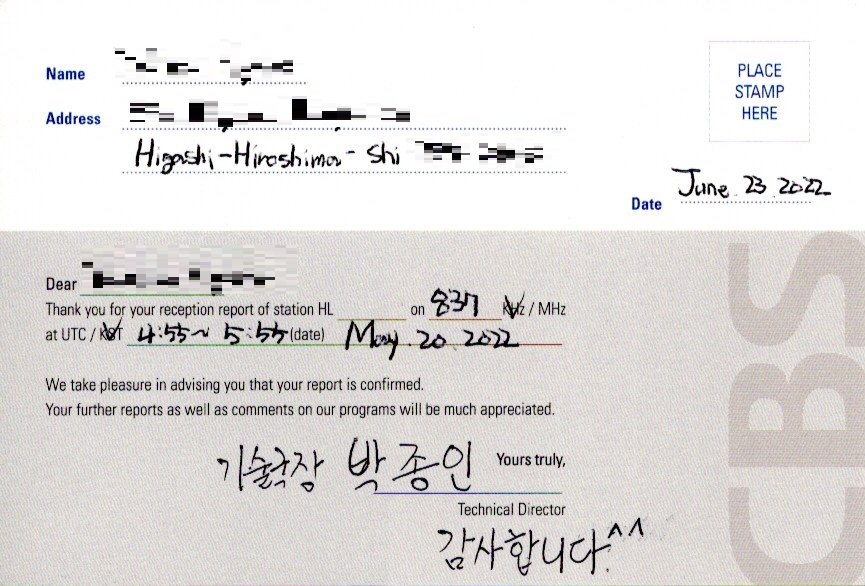 Name
Address
Higashi-Hiroshima-Shi
PLACE
STAMP
HERE
Date June 23. 2022
Dear
Thank you for your reception report of station HL on 837 KHz / MHz
at UTC / KST 4:55~ 5:55 (date) May. 20. 2022
We take pleasure in advising you that your report is confirmed.
Your further reports as well as comments on our programs will be much appreciated.
기술국장 박종인 Yours truly,
Technical Director
감사합니다.^^
CBS